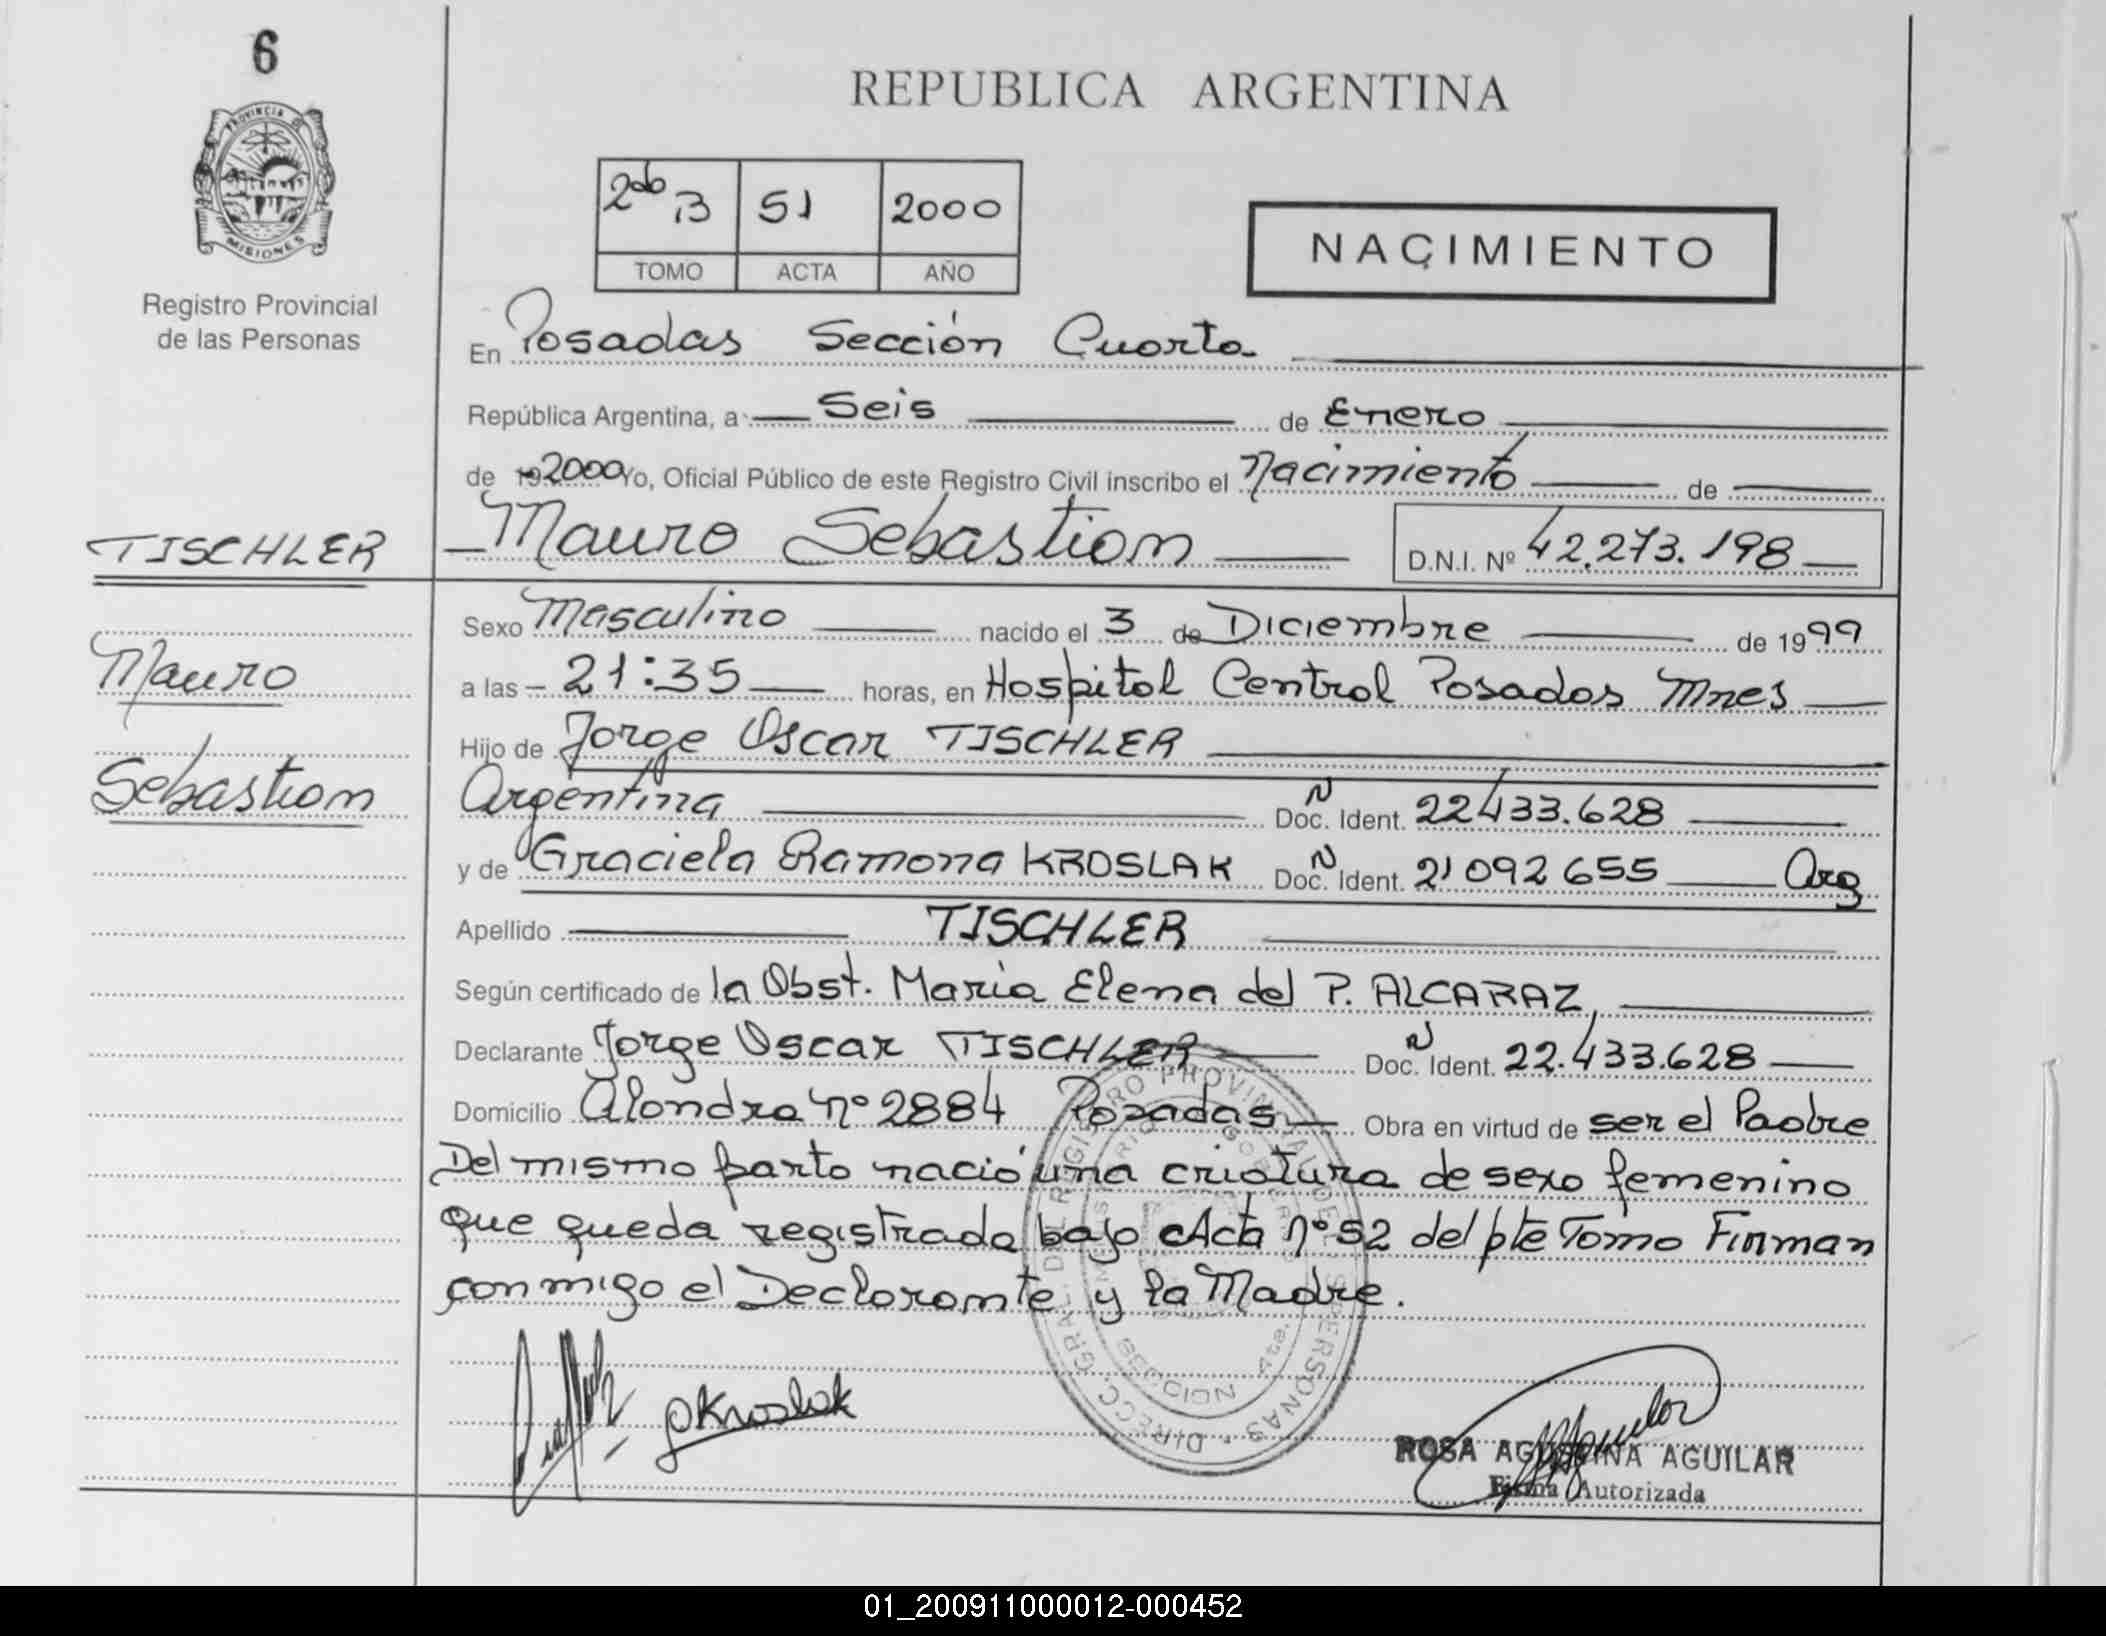 6
PROVINCIA DE
MISIONES
Registro Provincial
de las Personas
REPUBLICA ARGENTINA
2do B 51 2000
TOMO ACTA AÑO
NACIMIENTO
En Posadas Sección Cuarta
República Argentina, a Seis de Enero
de 19 2000 Yo, Oficial Público de este Registro Civil inscribo el Nacimiento de
TISCHLER
Mauro Sebastian D.N.I. Nº 42.273.198
Sexo Masculino nacido el 3 de Diciembre de 1999
Mauro
a las 21:35 horas, en Hospital Central Posadas Mnes
Hijo de Jorge Oscar TISCHLER
Sebastian
Argentina Doc. N Ident. 22433.628
y de Graciela Ramona KROSLAK Doc. N Ident. 21092655 Arg
Apellido TISCHLER
Según certificado de la Obst. Maria Elena del P. ALCARAZ
Declarante Jorge Oscar TISCHLER Doc. N Ident. 22.433.628
Domicilio Alondra nº 2884 Posadas Obra en virtud de ser el Padre
Del mismo parto nació una criatura de sexo femenino
que queda registrada bajo Acta nº 52 del pte Tomo Firman
conmigo el Declarante y la Madre.
GKroslak
DIRECC. GRAL. DEL REGISTRO PROVINCIAL DE PERSONAS
ROSA AGUSTINA AGUILAR
Firma Autorizada
01_200911000012-000452